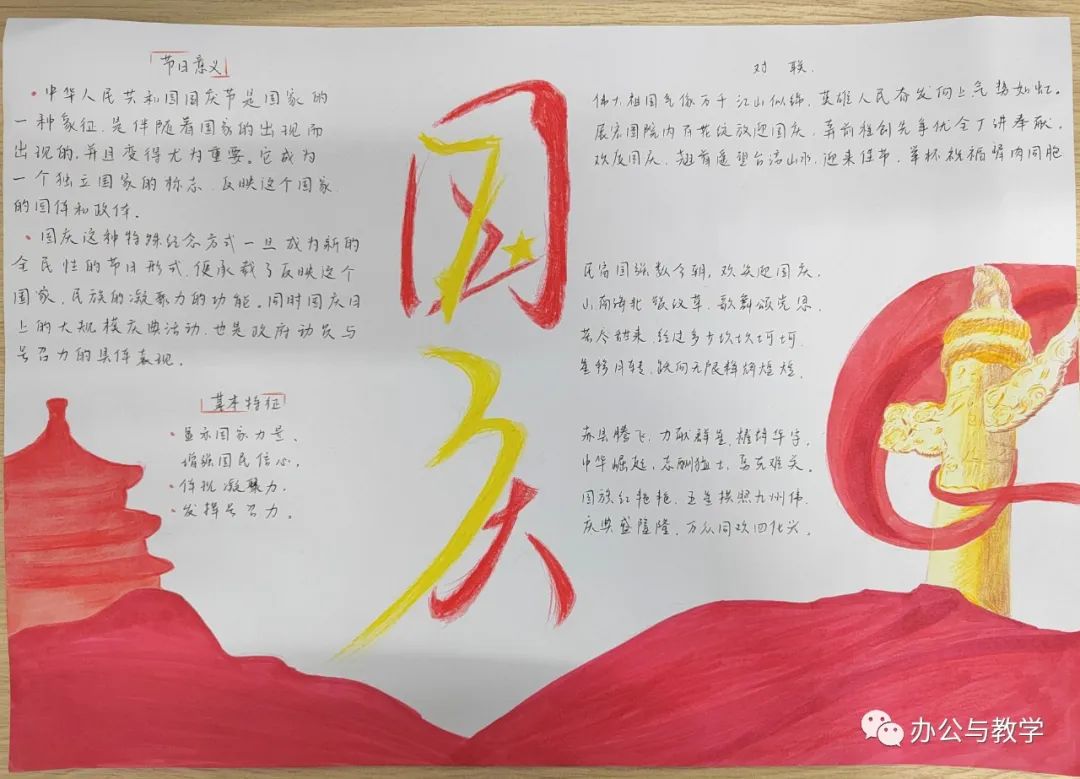 节日意义
·中华人民共和国国庆节是国家的
一种象征,是伴随着国家的出现而
出现的,并且变得尤为重要。它成为
一个独立国家的标志,反映这个国家
的国体和政体。
·国庆这种特殊纪念方式一旦成为新的
全民性的节日形式,便承载了反映这个
国家、民族的凝聚力的功能。同时国庆日
上的大规模庆典活动,也是政府动员与
号召力的具体表现。
基本特征
·显示国家力量、
增强国民信心,
·体现凝聚力,
·发挥号召力。
国庆
对联.
伟大祖国气像万千江山似锦,英雄人民奋发向上气势如虹。
展宏图院内百花绽放迎国庆,奔前程创先争优全丁讲奉献.
欢度国庆,翘首遥望台湾山水,迎来佳节,举杯祝福骨肉同胞
民富国强数今朝,欢欢迎国庆.
山南海北 改革,歌舞颂党恩.
苦尽甜来,经过多少坎坎坷坷.
星移月转,跃向无限辉煌煌煌.
苏县腾飞,力献群星,耀炜华宇.
中华崛起,志酬猛士,马克难关。
国旗红艳艳,五星拱照九州伟.
庆典盛隆隆,万众同欢四化兴.
办公与教学